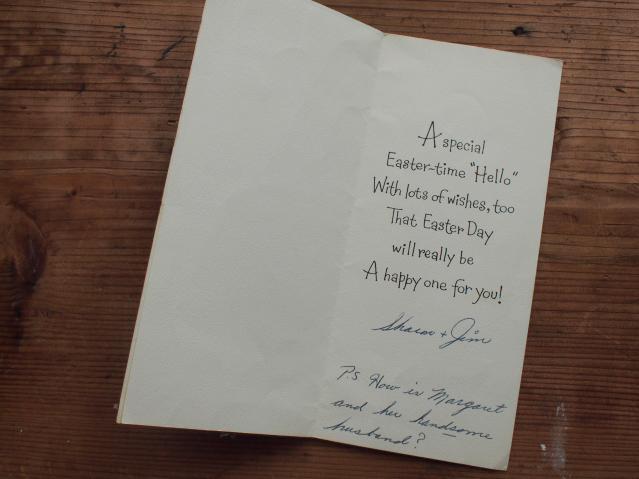 A special
Easter-time "Hello"
With lots of wishes, too
That Easter Day
will really be
A happy one for you!
Sharon + Jim
P.S How is Margaret
and her handsome
husband?